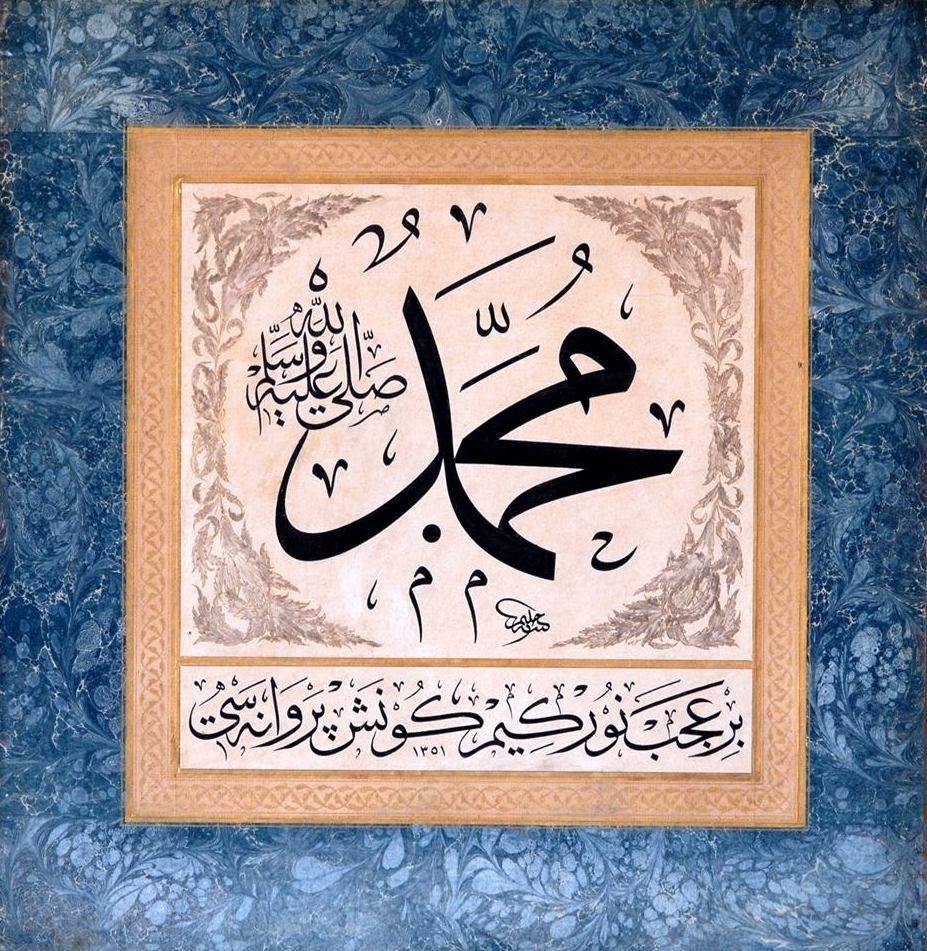 محمد
صلى الله عليه وسلم
بر عجب نور كيم كونش پروانه سى
١٣٥١